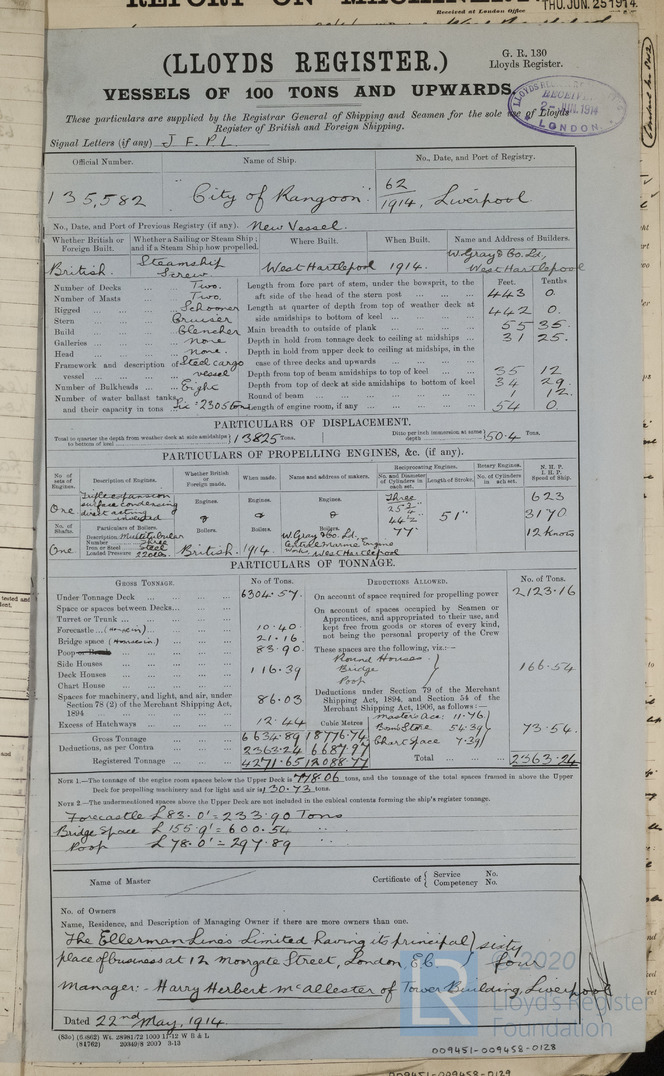 REPORT ON MACHINERY
Received at London Office
THU. JUN. 25 1914
(LLOYDS REGISTER.)
G. R. 130
Lloyds Register.
VESSELS OF 100 TONS AND UPWARDS.
LONDON
These particulars are supplied by the Registrar General of Shipping and Seamen for the sole use of Lloyds
Register of British and Foreign Shipping.
Signal Letters (if any) J F P L
Official Number. Name of Ship. No., Date, and Port of Registry.
135,582 "City of Rangoon" 62/1914, Liverpool
No., Date, and Port of Previous Registry (if any). New Vessel.
Whether British or Foreign Built. Whether a Sailing or Steam Ship; and if a Steam Ship how propelled. Where Built. When Built. Name and Address of Builders.
British. Steamship Screw. West Hartlepool 1914. W. Gray & Co. Ld., West Hartlepool
Feet. Tenths
Number of Decks ... Two. Length from fore part of stem, under the bowsprit, to the
Number of Masts ... Two. aft side of the head of the stern post ... 443 0.
Rigged ... Schooner Length at quarter of depth from top of weather deck at
Stern ... Cruiser side amidships to bottom of keel ... 442 0.
Build ... Clencher Main breadth to outside of plank ... 55 35.
Galleries ... None Depth in hold from tonnage deck to ceiling at midships ... 31 25.
Head ... None. Depth in hold from upper deck to ceiling at midships, in the
Framework and description of vessel ... Steel cargo vessel case of three decks and upwards
Depth from top of beam amidships to top of keel ... 35 12
Number of Bulkheads ... Eight Depth from top of deck at side amidships to bottom of keel 34 29.
Number of water ballast tanks, Round of beam ... 1 12.
and their capacity in tons .. Six: 2305 tons Length of engine room, if any ... 54 0.
PARTICULARS OF DISPLACEMENT.
Total to quarter the depth from weather deck at side amidships to bottom of keel 13825 Tons. Ditto per inch immersion at same depth 50.4 Tons.
PARTICULARS OF PROPELLING ENGINES, &c. (if any).
No. of sets of Engines. Description of Engines. Whether British or Foreign made. When made. Name and address of makers. Reciprocating Engines. Rotary Engines. N. H. P. I. H. P. Speed of Ship.
No. and Diameter of Cylinders in each set. Length of Stroke. No. of Cylinders in each set.
One Triple expansion surface condensing direct acting inverted Engines. Engines. Engines. Three 51" 623
44½" 3170
77" 12 knots
No. of Shafts. Particulars of Boilers. Boilers. Boilers. Boilers.
One Description Multitubular
Number Three
Iron or Steel Steel
Loaded Pressure 220lbs. British. 1914. W. Gray & Co. Ld. Central Marine Engine Works West Hartlepool
PARTICULARS OF TONNAGE.
GROSS TONNAGE. No of Tons. DEDUCTIONS ALLOWED. No. of Tons.
Under Tonnage Deck ... 6304.57. On account of space required for propelling power 2123.16
Space or spaces between Decks... On account of spaces occupied by Seamen or
Turret or Trunk ... Apprentices, and appropriated to their use, and
Forecastle ... 10.40. kept free from goods or stores of every kind,
Bridge space ... 21.16. not being the personal property of the Crew
Poop or Break 83.90 These spaces are the following, viz.:—
Side Houses Round Houses
Deck Houses 116.39 Bridge 166.54
Chart House Poop
Spaces for machinery, and light, and air, under Section 78 (2) of the Merchant Shipping Act, 1894 86.03 Deductions under Section 79 of the Merchant Shipping Act, 1894, and Section 54 of the Merchant Shipping Act, 1906, as follows:—
Excess of Hatchways 12.44 Cubic Metres Master's Acc: 11.76
Gross Tonnage 6634.89 18776.74 Bosn Store 54.39 73.54.
Deductions, as per Contra 2363.24 6687.97 Chart Space 7.39
Registered Tonnage 4271.65 12088.77 Total 2363.24
NOTE 1.—The tonnage of the engine room spaces below the Upper Deck is 778.06 tons, and the tonnage of the total spaces framed in above the Upper
Deck for propelling machinery and for light and air is 130.73 tons.
NOTE 2.—The undermentioned spaces above the Upper Deck are not included in the cubical contents forming the ship's register tonnage.
Forecastle L 83.0' = 233.90 Tons
Bridge Space L 155.9' = 600.54 "
Poop L 78.0' = 297.89
Name of Master Certificate of { Service No. Competency No.
No. of Owners
Name, Residence, and Description of Managing Owner if there are more owners than one.
The Ellerman Lines Limited having its principal } sixty
place of business at 12 Moorgate Street, London, E.C. } four
Manager:- Harry Herbert McAllester of Tower Building, Liverpool
Dated 22nd May, 1914.
(83o) (6.(862) Wt. 28981/72 1000 11-12 W B & L
(81762) 20349/8 2000 3-13
© 2020
LR Lloyd's Register
Foundation
009451-009458-0128
009451-009458-0129